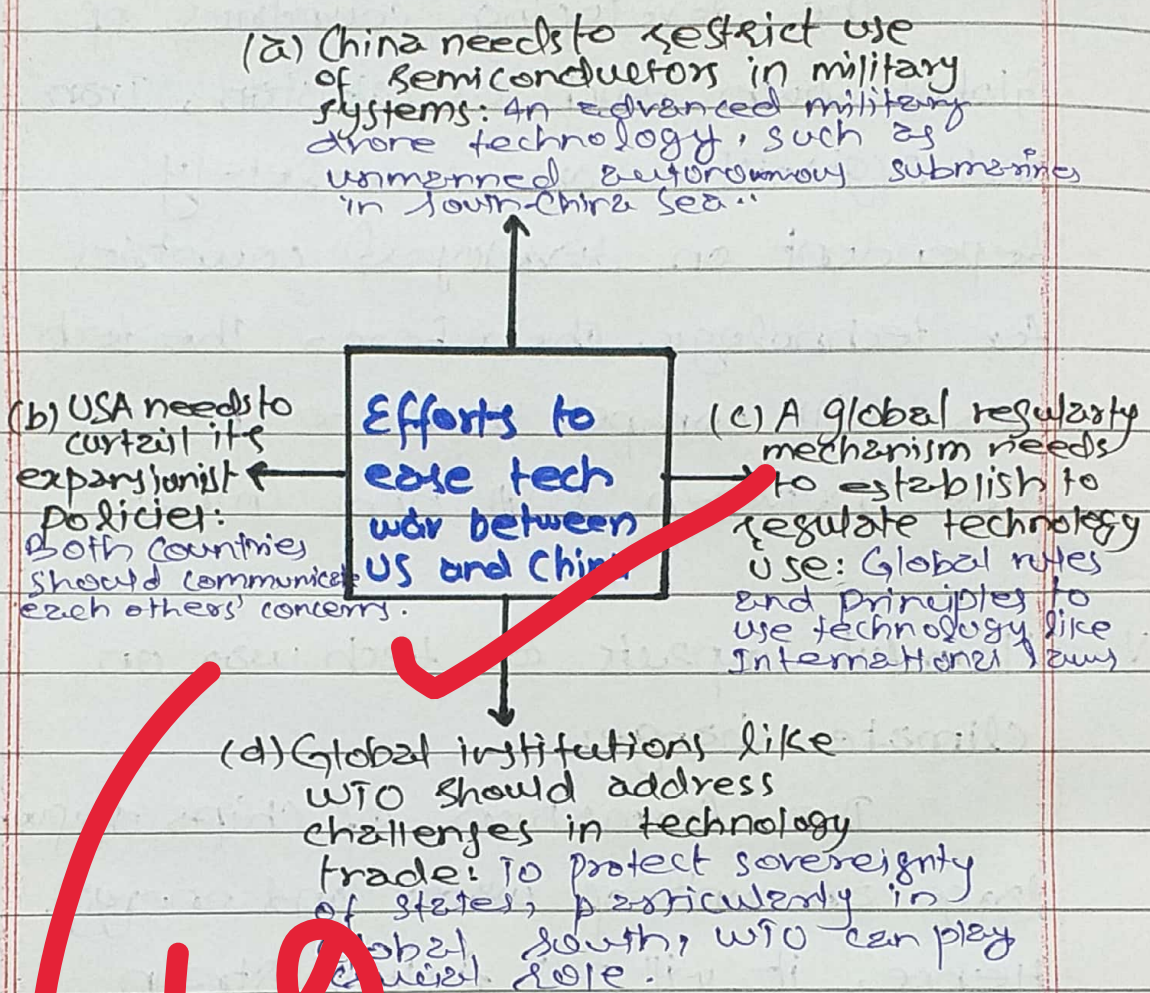 (a) China needs to restrict use
of semiconductors in military
systems: In advanced military
drone technology, such as
unmanned autonomous submarines
in South-China Sea..
(b) USA needs to
curtail its
expansionist
policies:
Both countries
should communicate
each others' concerns.
Efforts to
ease tech
war between
US and China
(c) A global regularty
mechanism needs
to establish to
regulate technology
use: Global rules
and principles to
use technology like
International laws
(d) Global institutions like
WTO should address
challenges in technology
trade: To protect sovereignty
of states, particularly in
Global South, WTO can play
crucial role.